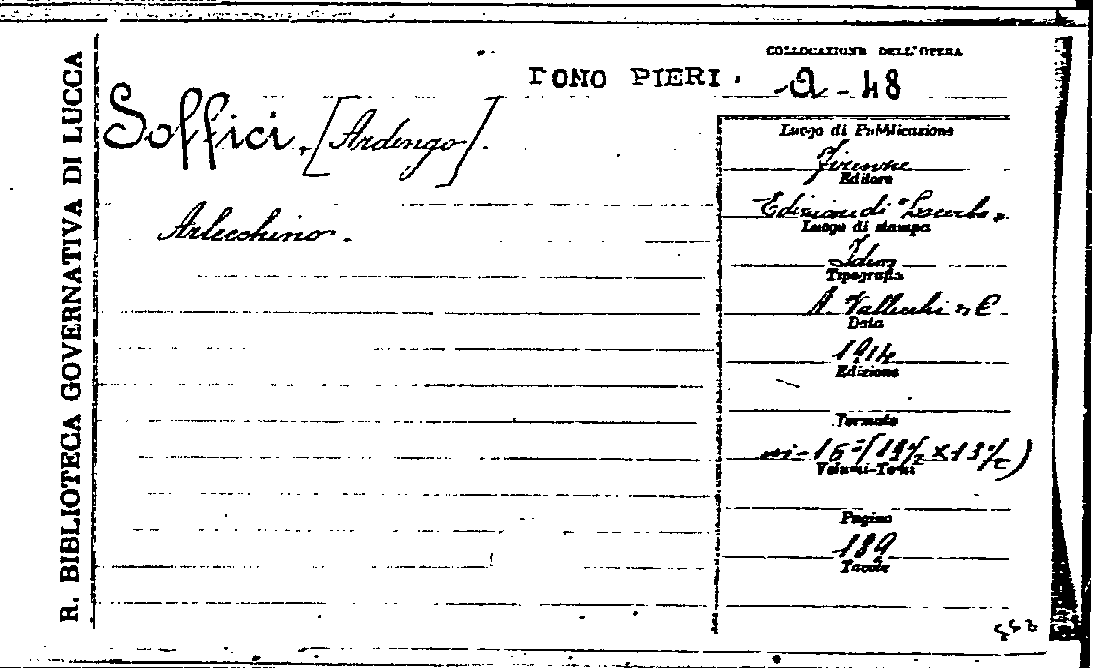 R. BIBLIOTECA GOVERNATIVA DI LUCCA
COLLOCAZIONE DELL'OPERA
DONO PIERI. Q - 48
Soffici, [Ardengo].
Arlecchino.
Luogo di Pubblicazione
Firenze
Editore
Edizioni di "Lacerba".
Luogo di stampa
Idem
Tipografia
A. Vallecchi e C
Data
1914
Edizione
Formato
in-16° (19 1/2 × 13 1/2)
Volumi-Tomi
Pagine
189
Tavole